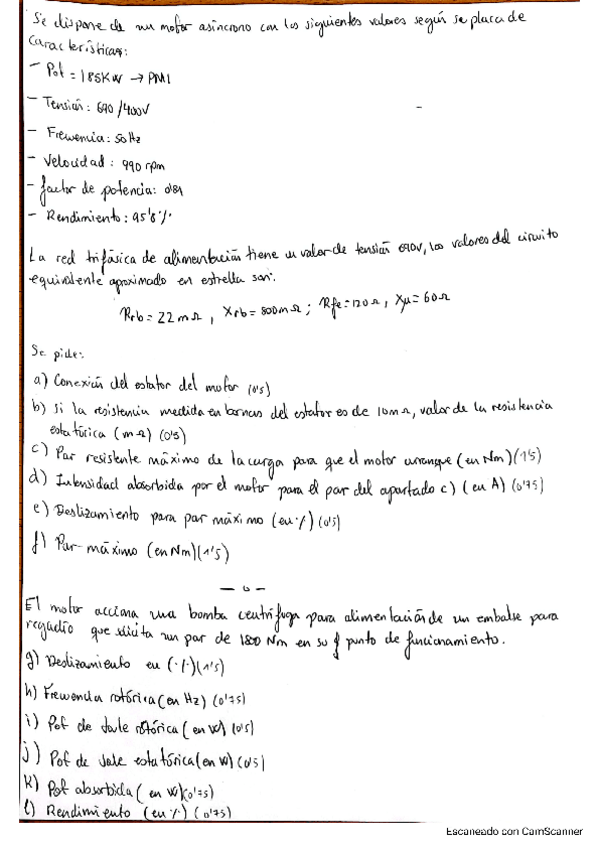 Se dispone de un motor asíncrono con los siguientes valores según se placa de
características:
- Pot = 185KW → PM1
- Tensión: 690/400V
- Frecuencia: 50Hz
- Velocidad: 990 rpm
- factor de potencia: 0'84
- Rendimiento: 95'8 %
La red trifásica de alimentación tiene un valor de tensión 690V, los valores del circuito
equivalente aproximado en estrella son:
Rrb = 22 mΩ, Xrb = 800mΩ; Rfe = 120 Ω, Xμ = 60Ω
Se pide:
a) Conexión del estator del motor (0'5)
b) Si la resistencia medida en bornas del estator es de 10mΩ, valor de la resistencia
estatórica (mΩ) (0'5)
c) Par resistente máximo de la carga para que el motor arranque (en Nm) (1'5)
d) Intensidad absorbida por el motor para el par del apartado c) (en A) (0'75)
e) Deslizamiento para par máximo (en %) (0'5)
f) Par máximo (en Nm) (1'5)
El motor acciona una bomba centrífuga para alimentación de un embalse para
regadío que solicita un par de 1800 Nm en su punto de funcionamiento.
g) Deslizamiento en (%) (1'5)
h) Frecuencia rotórica (en Hz) (0'75)
i) Pot de Joule rotórica (en W) (0'5)
j) Pot de Joule estatórica (en W) (0'5)
k) Pot absorbida (en W) (0'75)
l) Rendimiento (en %) (0'75)
Escaneado con CamScanner